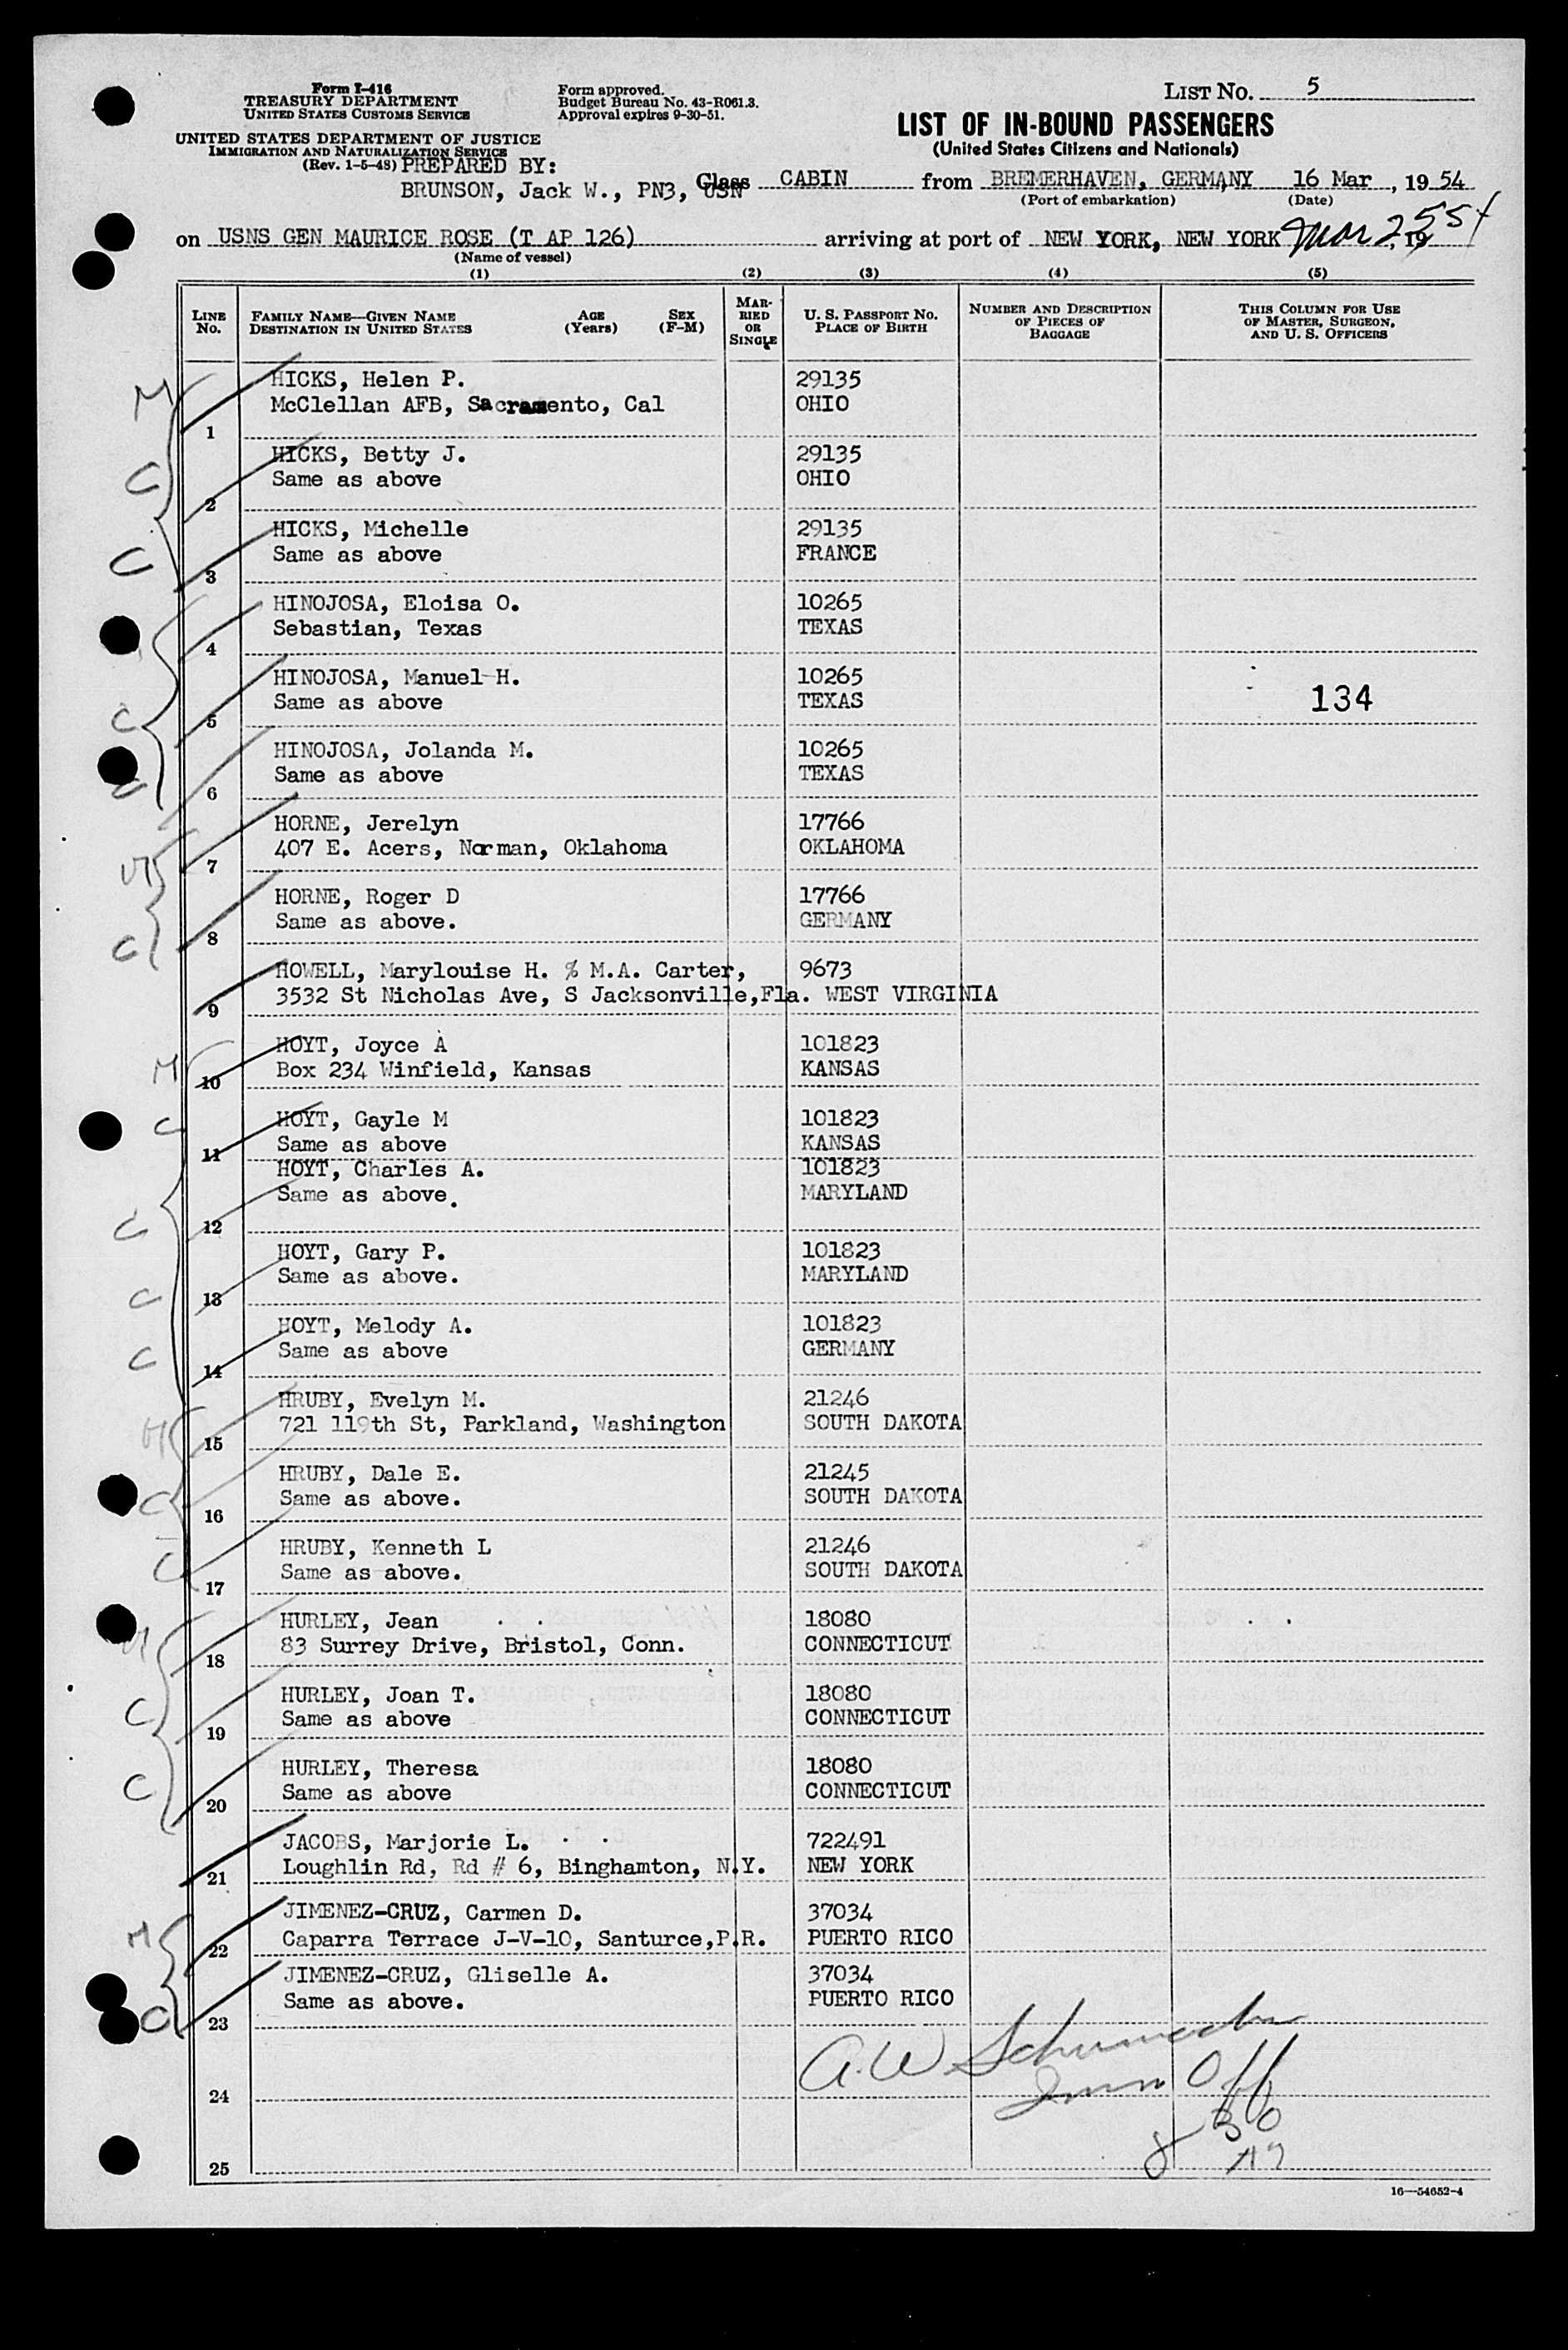 Form I-416
TREASURY DEPARTMENT
UNITED STATES CUSTOMS SERVICE
UNITED STATES DEPARTMENT OF JUSTICE
IMMIGRATION AND NATURALIZATION SERVICE
(Rev. 1-5-48) PREPARED BY:
BRUNSON, Jack W., PN3, USN
Form approved.
Budget Bureau No. 43-R061.3.
Approval expires 9-30-51.
LIST NO. 5
LIST OF IN-BOUND PASSENGERS
(United States Citizens and Nationals)
Class CABIN from BREMERHAVEN, GERMANY 16 Mar, 1954
(Port of embarkation) (Date)
on USNS GEN MAURICE ROSE (T AP 126) arriving at port of NEW YORK, NEW YORK Mar 25 54, 19
(Name of vessel)
(1) (2) (3) (4) (5)
LINE NO.
FAMILY NAME—GIVEN NAME
DESTINATION IN UNITED STATES
AGE (Years)
SEX (F-M)
MARRIED OR SINGLE
U. S. PASSPORT NO.
PLACE OF BIRTH
NUMBER AND DESCRIPTION OF PIECES OF BAGGAGE
THIS COLUMN FOR USE OF MASTER, SURGEON, AND U. S. OFFICERS
M HICKS, Helen P. 29135
1 McClellan AFB, Sacramento, Cal OHIO
C HICKS, Betty J. 29135
2 Same as above OHIO
C HICKS, Michelle 29135
3 Same as above FRANCE
HINOJOSA, Eloisa O. 10265
4 Sebastian, Texas TEXAS
C HINOJOSA, Manuel H. 10265
5 Same as above TEXAS 134
C HINOJOSA, Jolanda M. 10265
6 Same as above TEXAS
M HORNE, Jerelyn 17766
7 407 E. Acers, Norman, Oklahoma OKLAHOMA
C HORNE, Roger D 17766
8 Same as above. GERMANY
HOWELL, Marylouise H. % M.A. Carter, 9673
9 3532 St Nicholas Ave, S Jacksonville, Fla. WEST VIRGINIA
M HOYT, Joyce A 101823
10 Box 234 Winfield, Kansas KANSAS
C HOYT, Gayle M 101823
11 Same as above KANSAS
C HOYT, Charles A. 101823
12 Same as above. MARYLAND
C HOYT, Gary P. 101823
13 Same as above. MARYLAND
C HOYT, Melody A. 101823
14 Same as above GERMANY
M HRUBY, Evelyn M. 21246
15 721 119th St, Parkland, Washington SOUTH DAKOTA
C HRUBY, Dale E. 21245
16 Same as above. SOUTH DAKOTA
C HRUBY, Kenneth L 21246
17 Same as above. SOUTH DAKOTA
M HURLEY, Jean 18080
18 83 Surrey Drive, Bristol, Conn. CONNECTICUT
C HURLEY, Joan T. 18080
19 Same as above CONNECTICUT
C HURLEY, Theresa 18080
20 Same as above CONNECTICUT
JACOBS, Marjorie L. 722491
21 Loughlin Rd, Rd # 6, Binghamton, N.Y. NEW YORK
M JIMENEZ-CRUZ, Carmen D. 37034
22 Caparra Terrace J-V-10, Santurce, P.R. PUERTO RICO
C JIMENEZ-CRUZ, Gliselle A. 37034
23 Same as above. PUERTO RICO
A.W. Schumacher
24 Imm Off
30
25
16—54652-4